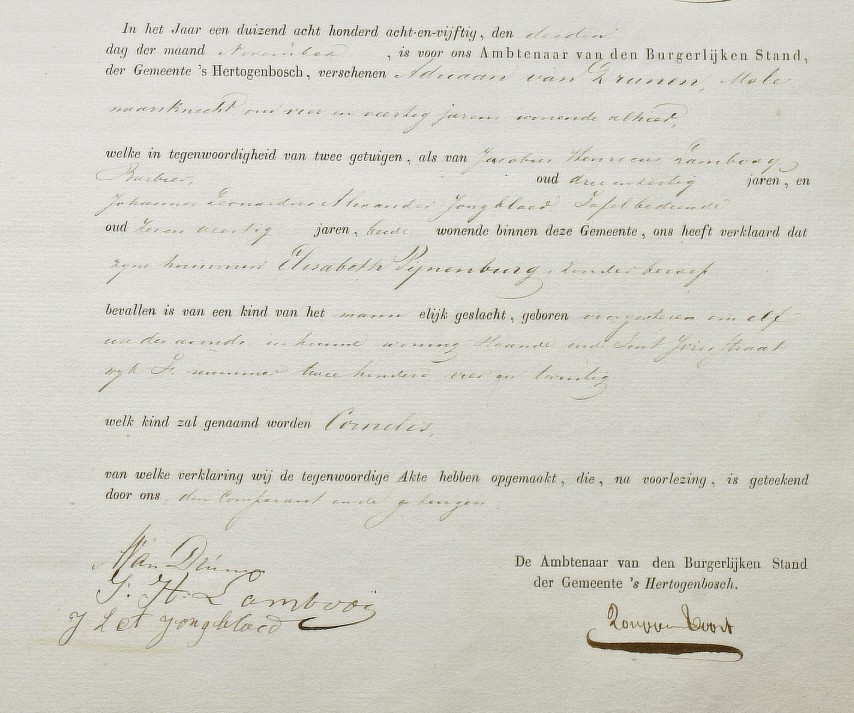 In het Jaar een duizend acht honderd acht-en-vijftig, den derden
dag der maand November , is voor ons Ambtenaar van den Burgerlijken Stand,
der Gemeente 's Hertogenbosch, verschenen Adriaan van Drunen, Mole
naarsknecht oud vier en veertig jaren wonende alhier,
welke in tegenwoordigheid van twee getuigen, als van Jacobus Henricus Lambooy
Barbier, oud drie en dertig jaren, en
Johannes Leonardus Alexander Jongbloed Tafelbediende
oud zeven veertig jaren, beide wonende binnen deze Gemeente, ons heeft verklaard dat
zyne huisvrouw Elisabeth Pijnenburg, zonder beroep
bevallen is van een kind van het mann elijk geslacht, geboren eergisteren om elf
ure des avonds in hunne woning staande in de Sint Jorisstraat
wyk F. nummer twee honderd vier en twintig
welk kind zal genaamd worden Cornelis,
van welke verklaring wij de tegenwoordige Akte hebben opgemaakt, die, na voorlezing, is geteekend
door ons, den Comparant en de getuigen
AVan Drunen
De Ambtenaar van den Burgerlijken Stand
der Gemeente 's Hertogenbosch.
J. H. Lambooij
J L A Jongbloed